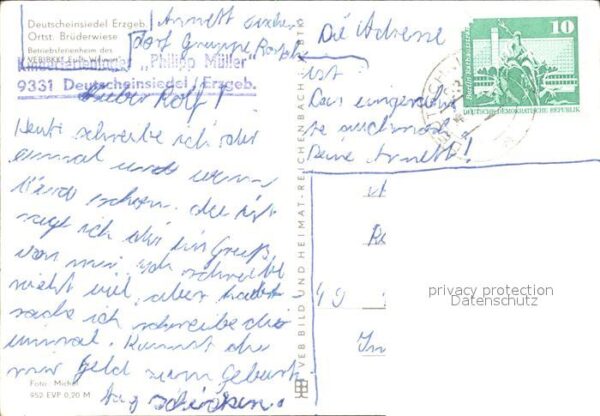 Deutscheinsiedel Erzgeb.
Ortst. Brüderwiese
Betriebsferienheim des
VEB
Kinderferienlager "Philipp Müller"
9331 Deutscheinsiedel / Erzgeb.
Annett
Gruppe
Lieber Rolf!
Heute schreibe ich dir
einmal und wenn
schon da ist
sage ich dir ein Gruß
von mir ich schreibe
nicht viel, aber haubt
sache ich schreibe dir
einmal. Kannst du
mir Geld zum Geburt
tag schicken.
Foto: Michel
952 EVP 0,20 M
VEB BILD UND HEIMAT · REICHENBACH
Die Adresse
ist
Das
te auch noch
Deine Annett!
Berlin Rathausstraße
10
DEUTSCHE DEMOKRATISCHE REPUBLIK
49
privacy protection
Datenschutz